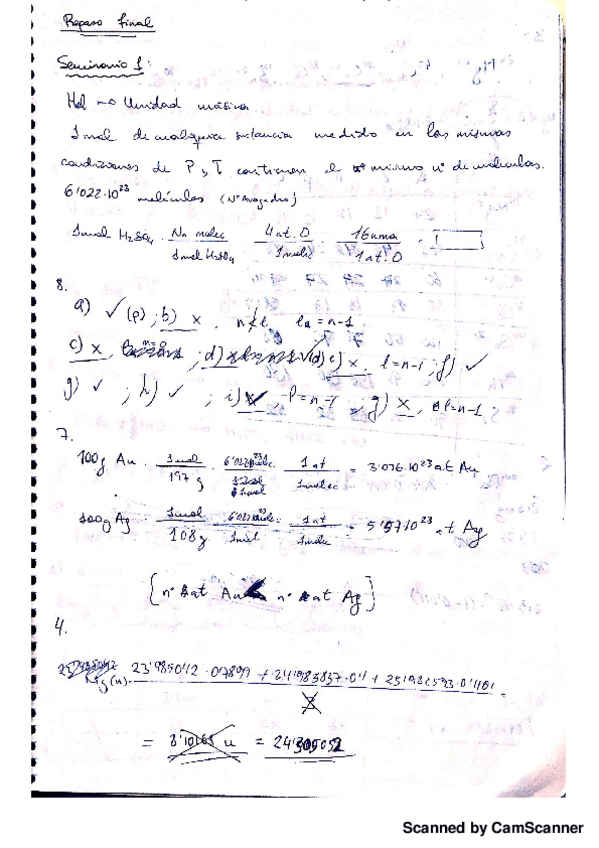 Repaso final
Seminario 1:
Mol → Unidad másica
1mol de cualquier sustancia medido en las mismas
condiciones de P y T contienen el mismo nº de moléculas.
6'022·10²³ moléculas (Nº Avogadro)
1mol H₂SO₄ · Na molec / 1mol H₂SO₄ · 4 at. O / 1molec · 16uma / 1 at. O =
8.
a) ✓ (p) ; b) x , lₐ = n-1
c) x , ; d) e) x , l=n-1 ; f) ✓
g) ✓ ; h) ✓ ; i) , l=n-1 , g) x , l=n-1
7.
100g Au · 1mol / 197 g · 1 at / 1molec = 3'076·10²³ at Au
100g Ag · 1mol / 108 g · / 1mol · 1 at / 1molec = 5'57·10²³ at Ag
[nº at Au < nº at Ag]
4.
Mg (u) · 23'985042 · 0'7899 + 24'985837 · 0'1 + 25'982593 · 0'1101 / 3 =
= 8'10165 u =
Scanned by CamScanner